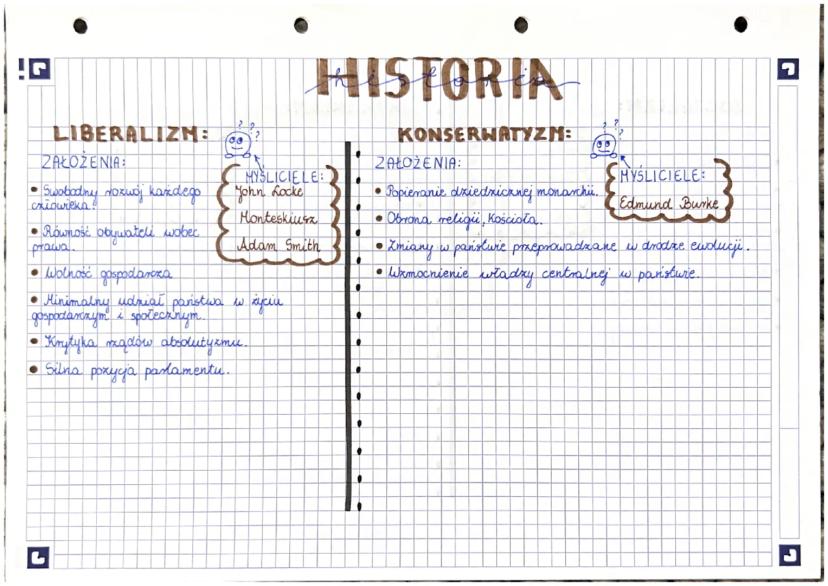 HISTORIA
historia
LIBERALIZM:
ZAŁOŻENIA:
• Swobodny rozwój każdego
człowieka.
• Równość obywateli wobec
prawa.
• Wolność gospodarcza
• Minimalny udział państwa w życiu
gospodarczym i społecznym.
• Krytyka rządów absolutyzmu.
• Silna pozycja parlamentu.
? ? ?
MYŚLICIELE:
John Locke
Monteskiusz
Adam Smith
KONSERWATYZM:
ZAŁOŻENIA:
• Popieranie dziedzicznej monarchii.
• Obrona religii, Kościoła.
• Zmiany w państwie przeprowadzane w drodze ewolucji.
• Wzmocnienie władzy centralnej w państwie.
? ? ?
MYŚLICIELE:
Edmund Burke